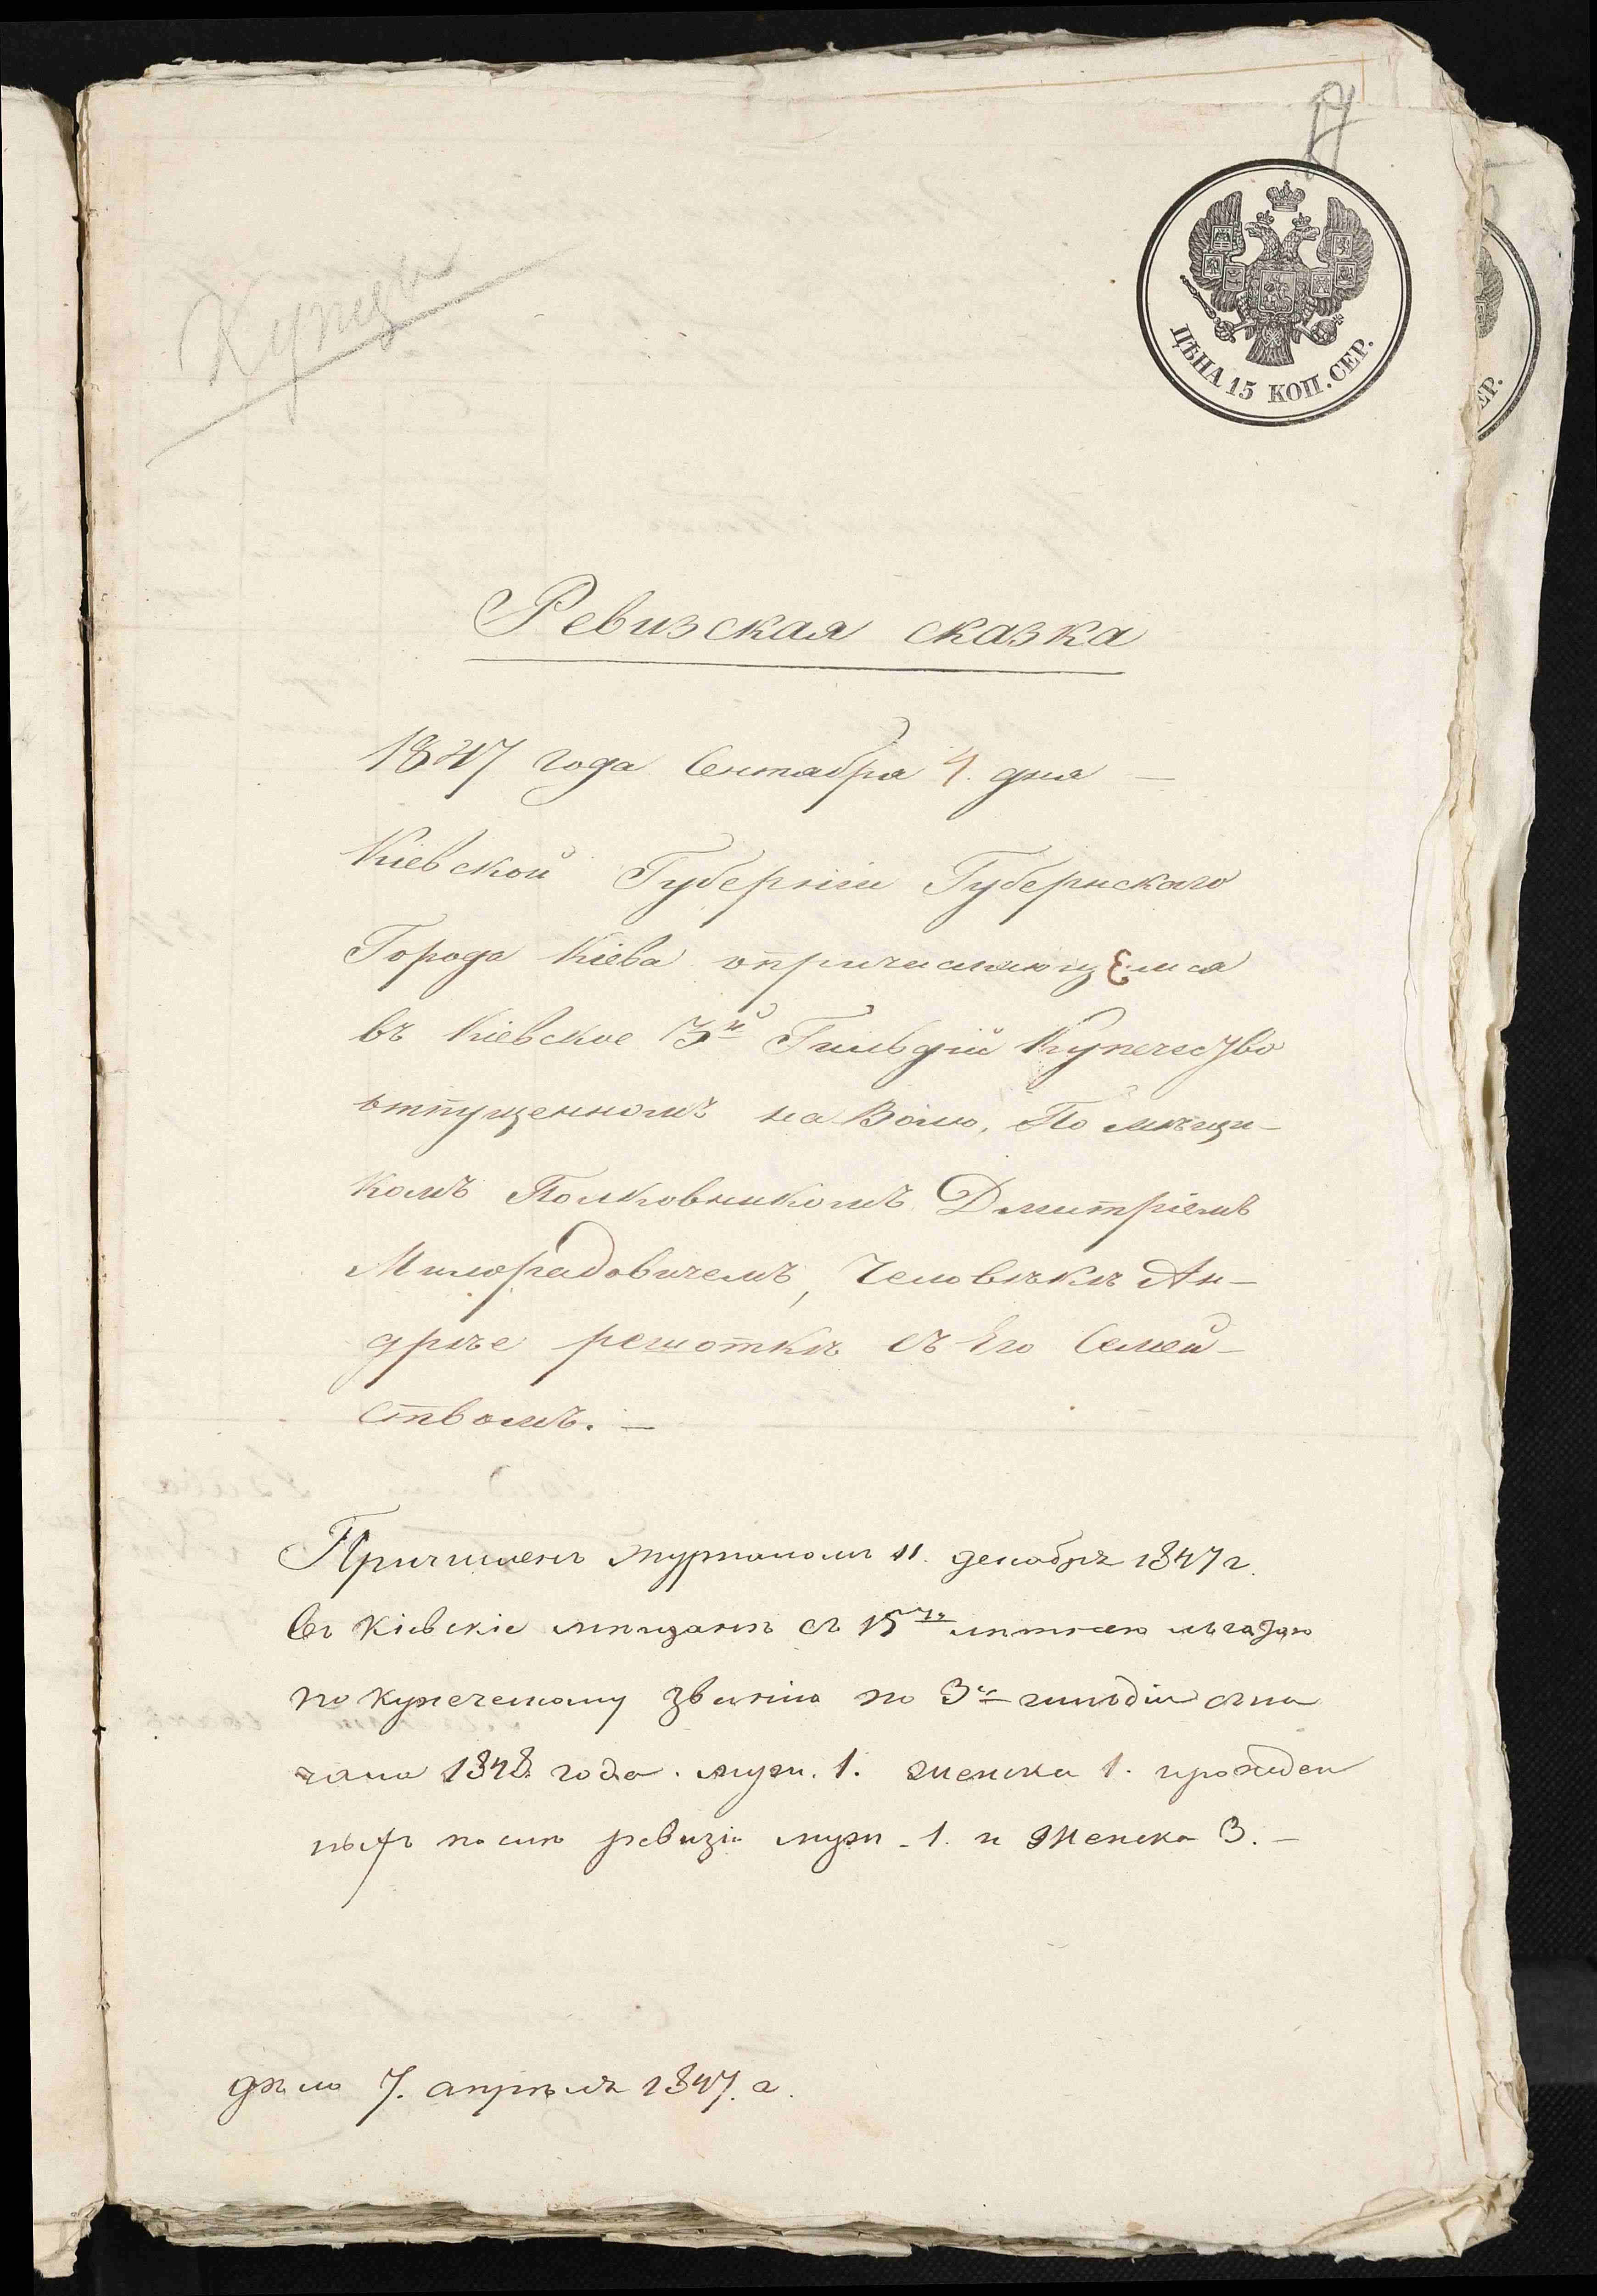 Купцы
ЦѢНА 15 КОП. СЕР.
Ревизская сказка
1847 года Сентября 4. дня —
Кіевской Губерніи Губернскаго
Города Кіева опричисляющемся
въ Кіевское 3й Гильдіи Купечество
отпущенномъ на Волю, Помѣщи-
комъ Полковникомъ Дмитріемъ
Милорадовичемъ, Человѣкѣ Ан-
дрѣе решоткѣ съ Его Семей-
ствомъ. —
Причисленъ журналомъ 11. декабря 1847 г.
въ Кіевскіе мѣщанѣ съ 15ти лѣтнею льготою
по купеческому званію по 3й гильдіи съ на
чала 1848 года. муж. 1. женска 1. прожден
ныхъ послѣ ревизіи муж. 1. и женска 3. —
дѣло 7. апрѣля 1847. г.